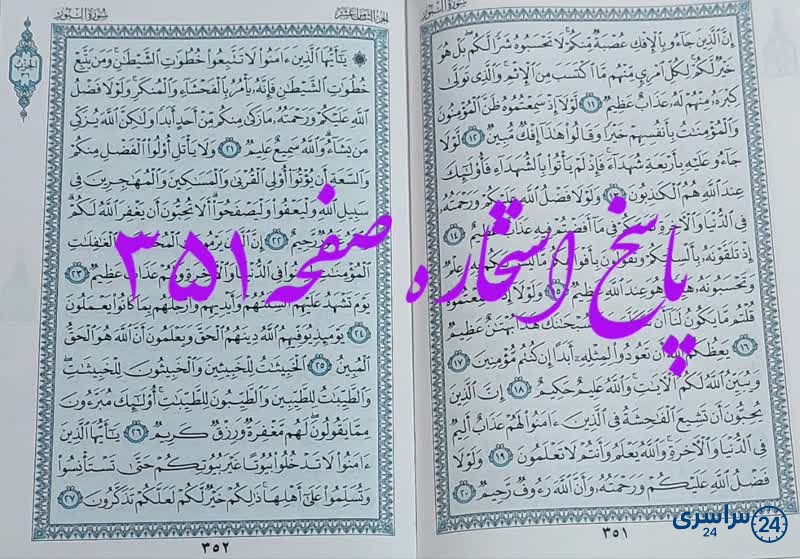 سورة النور
إِنَّ الَّذِينَ جَاءُو بِالْإِفْكِ عُصْبَةٌ مِنْكُمْ لَا تَحْسَبُوهُ شَرًّا لَكُمْ بَلْ هُوَ
خَيْرٌ لَكُمْ لِكُلِّ امْرِئٍ مِنْهُمْ مَا اكْتَسَبَ مِنَ الْإِثْمِ وَالَّذِي تَوَلَّى
كِبْرَهُ مِنْهُمْ لَهُ عَذَابٌ عَظِيمٌ ۝١١ لَوْلَا إِذْ سَمِعْتُمُوهُ ظَنَّ الْمُؤْمِنُونَ
وَالْمُؤْمِنَاتُ بِأَنْفُسِهِمْ خَيْرًا وَقَالُوا هَٰذَا إِفْكٌ مُبِينٌ ۝١٢ لَوْلَا
جَاءُو عَلَيْهِ بِأَرْبَعَةِ شُهَدَاءَ فَإِذْ لَمْ يَأْتُوا بِالشُّهَدَاءِ فَأُولَٰئِكَ
عِنْدَ اللَّهِ هُمُ الْكَاذِبُونَ ۝١٣ وَلَوْلَا فَضْلُ اللَّهِ عَلَيْكُمْ وَرَحْمَتُهُ
فِي الدُّنْيَا وَالْآخِرَةِ لَمَسَّكُمْ فِي مَا أَفَضْتُمْ فِيهِ عَذَابٌ عَظِيمٌ ۝١٤
إِذْ تَلَقَّوْنَهُ بِأَلْسِنَتِكُمْ وَتَقُولُونَ بِأَفْوَاهِكُمْ مَا لَيْسَ لَكُمْ بِهِ عِلْمٌ
وَتَحْسَبُونَهُ هَيِّنًا وَهُوَ عِنْدَ اللَّهِ عَظِيمٌ ۝١٥ وَلَوْلَا إِذْ سَمِعْتُمُوهُ
قُلْتُمْ مَا يَكُونُ لَنَا أَنْ نَتَكَلَّمَ بِهَٰذَا سُبْحَانَكَ هَٰذَا بُهْتَانٌ عَظِيمٌ
۝١٦ يَعِظُكُمُ اللَّهُ أَنْ تَعُودُوا لِمِثْلِهِ أَبَدًا إِنْ كُنْتُمْ مُؤْمِنِينَ ۝١٧
وَيُبَيِّنُ اللَّهُ لَكُمُ الْآيَاتِ وَاللَّهُ عَلِيمٌ حَكِيمٌ ۝١٨ إِنَّ الَّذِينَ
يُحِبُّونَ أَنْ تَشِيعَ الْفَاحِشَةُ فِي الَّذِينَ آمَنُوا لَهُمْ عَذَابٌ أَلِيمٌ
فِي الدُّنْيَا وَالْآخِرَةِ وَاللَّهُ يَعْلَمُ وَأَنْتُمْ لَا تَعْلَمُونَ ۝١٩ وَلَوْلَا
فَضْلُ اللَّهِ عَلَيْكُمْ وَرَحْمَتُهُ وَأَنَّ اللَّهَ رَءُوفٌ رَحِيمٌ ۝٢٠
٣٥١
الجزء الثامن عشر
سورة النور
الحزب ٣٦
يَا أَيُّهَا الَّذِينَ آمَنُوا لَا تَتَّبِعُوا خُطُوَاتِ الشَّيْطَانِ وَمَنْ يَتَّبِعْ
خُطُوَاتِ الشَّيْطَانِ فَإِنَّهُ يَأْمُرُ بِالْفَحْشَاءِ وَالْمُنْكَرِ وَلَوْلَا فَضْلُ
اللَّهِ عَلَيْكُمْ وَرَحْمَتُهُ مَا زَكَىٰ مِنْكُمْ مِنْ أَحَدٍ أَبَدًا وَلَٰكِنَّ اللَّهَ يُزَكِّي
مَنْ يَشَاءُ وَاللَّهُ سَمِيعٌ عَلِيمٌ ۝٢١ وَلَا يَأْتَلِ أُولُو الْفَضْلِ مِنْكُمْ
وَالسَّعَةِ أَنْ يُؤْتُوا أُولِي الْقُرْبَىٰ وَالْمَسَاكِينَ وَالْمُهَاجِرِينَ فِي
سَبِيلِ اللَّهِ وَلْيَعْفُوا وَلْيَصْفَحُوا أَلَا تُحِبُّونَ أَنْ يَغْفِرَ اللَّهُ لَكُمْ
وَاللَّهُ غَفُورٌ رَحِيمٌ ۝٢٢ إِنَّ الَّذِينَ يَرْمُونَ الْمُحْصَنَاتِ الْغَافِلَاتِ
الْمُؤْمِنَاتِ لُعِنُوا فِي الدُّنْيَا وَالْآخِرَةِ وَلَهُمْ عَذَابٌ عَظِيمٌ ۝٢٣
يَوْمَ تَشْهَدُ عَلَيْهِمْ أَلْسِنَتُهُمْ وَأَيْدِيهِمْ وَأَرْجُلُهُمْ بِمَا كَانُوا يَعْمَلُونَ
۝٢٤ يَوْمَئِذٍ يُوَفِّيهِمُ اللَّهُ دِينَهُمُ الْحَقَّ وَيَعْلَمُونَ أَنَّ اللَّهَ هُوَ الْحَقُّ
الْمُبِينُ ۝٢٥ الْخَبِيثَاتُ لِلْخَبِيثِينَ وَالْخَبِيثُونَ لِلْخَبِيثَاتِ
وَالطَّيِّبَاتُ لِلطَّيِّبِينَ وَالطَّيِّبُونَ لِلطَّيِّبَاتِ أُولَٰئِكَ مُبَرَّءُونَ
مِمَّا يَقُولُونَ لَهُمْ مَغْفِرَةٌ وَرِزْقٌ كَرِيمٌ ۝٢٦ يَا أَيُّهَا الَّذِينَ
آمَنُوا لَا تَدْخُلُوا بُيُوتًا غَيْرَ بُيُوتِكُمْ حَتَّىٰ تَسْتَأْنِسُوا
وَتُسَلِّمُوا عَلَىٰ أَهْلِهَا ذَٰلِكُمْ خَيْرٌ لَكُمْ لَعَلَّكُمْ تَذَكَّرُونَ ۝٢٧
٣٥٢
پاسخ استخاره صفحه ۳۵۱
سراسری 24
24